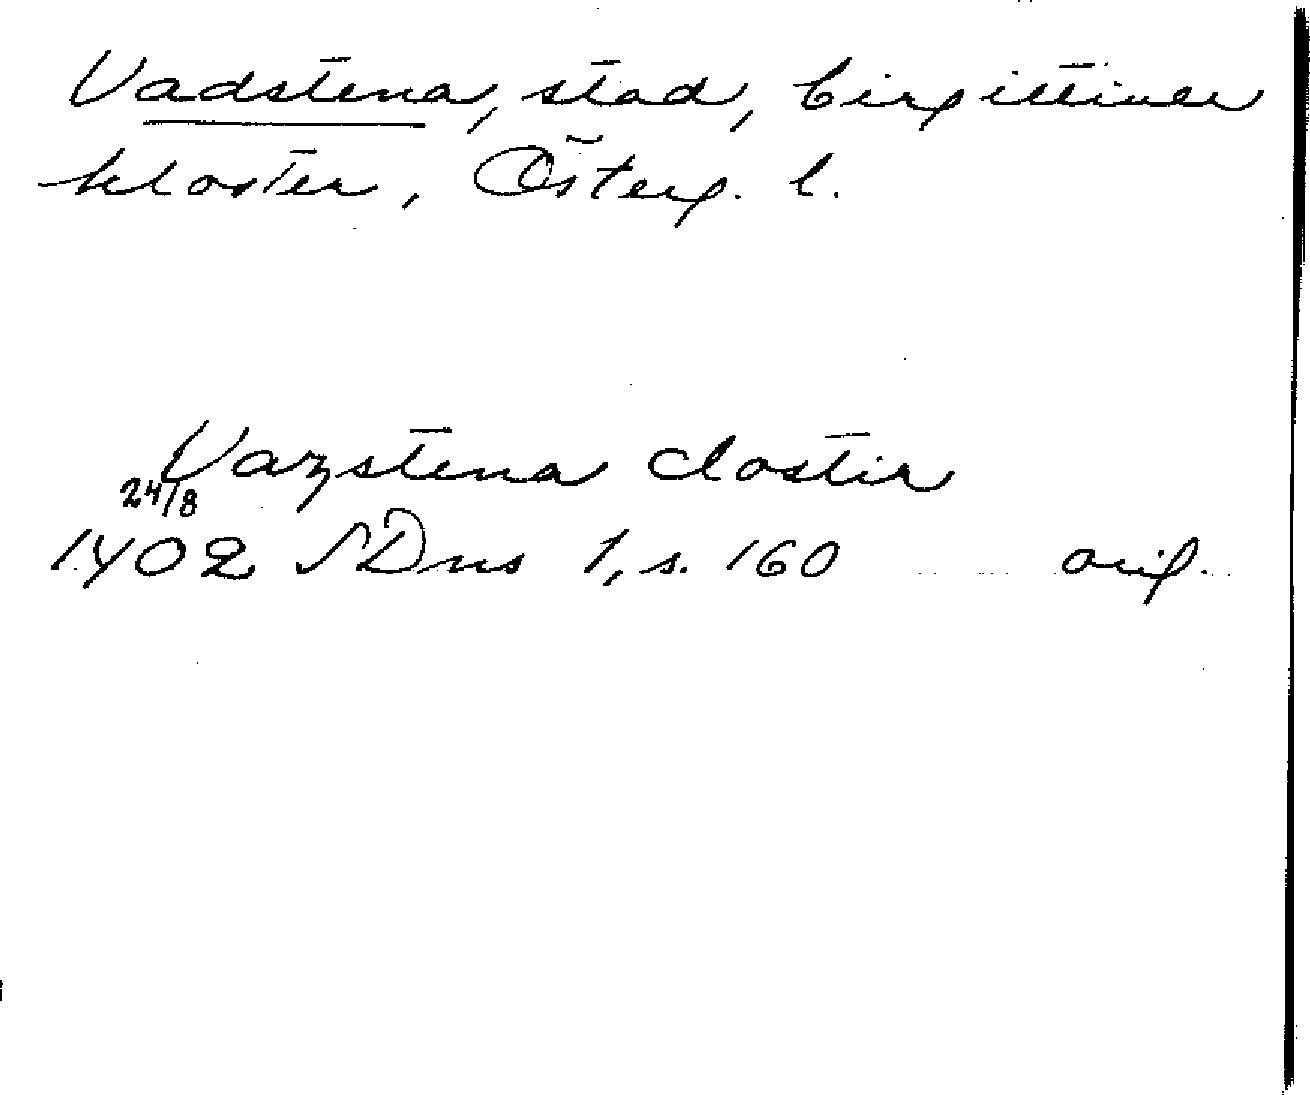 Vadstena, stad, birgittiner
kloster, Österg. l.
Vazstena clostir
24/8
1402 SDns 1, s. 160 orig.